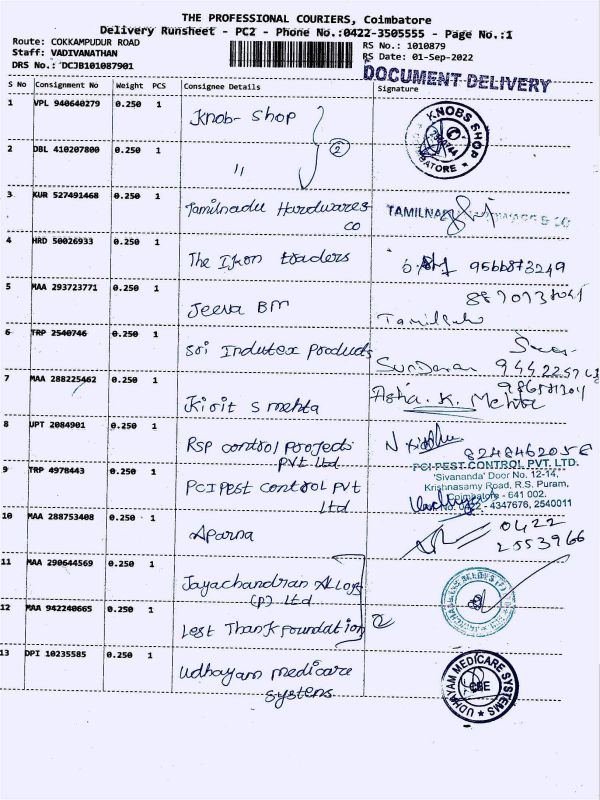 THE PROFESSIONAL COURIERS, Coimbatore
Delivery Runsheet - PC2 - Phone No.:0422-3505555 - Page No.:1
Route: COKKAMPUDUR ROAD
RS No.: 1010879
Staff: VADIVANATHAN
RS Date: 01-Sep-2022
DRS No.: DCJB101087901
DOCUMENT DELIVERY
S No Consignment No Weight PCS Consignee Details Signature
1 VPL 940640279 0.250 1 Knob- Shop
KNOBS SHOP
2 DBL 410207800 0.250 1 " ②
3 KUR 527491468 0.250 1 Tamilnadu Hardwares
CO
TAMILNADU
& CO
4 HRD 50026933 0.250 1 The Ikon traders 9566873249
5 MAA 293723771 0.250 1 Jeeva BM
6 TRP 2540746 0.250 1 Sri Indutex Products
7 MAA 288225462 0.250 1 Kirit S mehta Asha. K. Mehta
8 UPT 2084901 0.250 1 RSP control Projects
Pvt Ltd
8248462056
9 TRP 4978443 0.250 1 PCI Pest control Pvt
Ltd
PCI PEST CONTROL PVT. LTD.
'Sivananda' Door No. 12-14,
Krishnasamy Road, R.S. Puram,
Coimbatore - 641 002.
No. 0422 - 4347676, 2540011
10 MAA 288753408 0.250 1 Aparna 0422
2553966
11 MAA 290644569 0.250 1 Jayachandran Alloys
(P) Ltd
12 MAA 942240665 0.250 1 Lest Thank foundation 2
13 DPI 10235585 0.250 1 Udhayam medicare
systems
UDHAYAM MEDICARE SYSTEMS
CBE